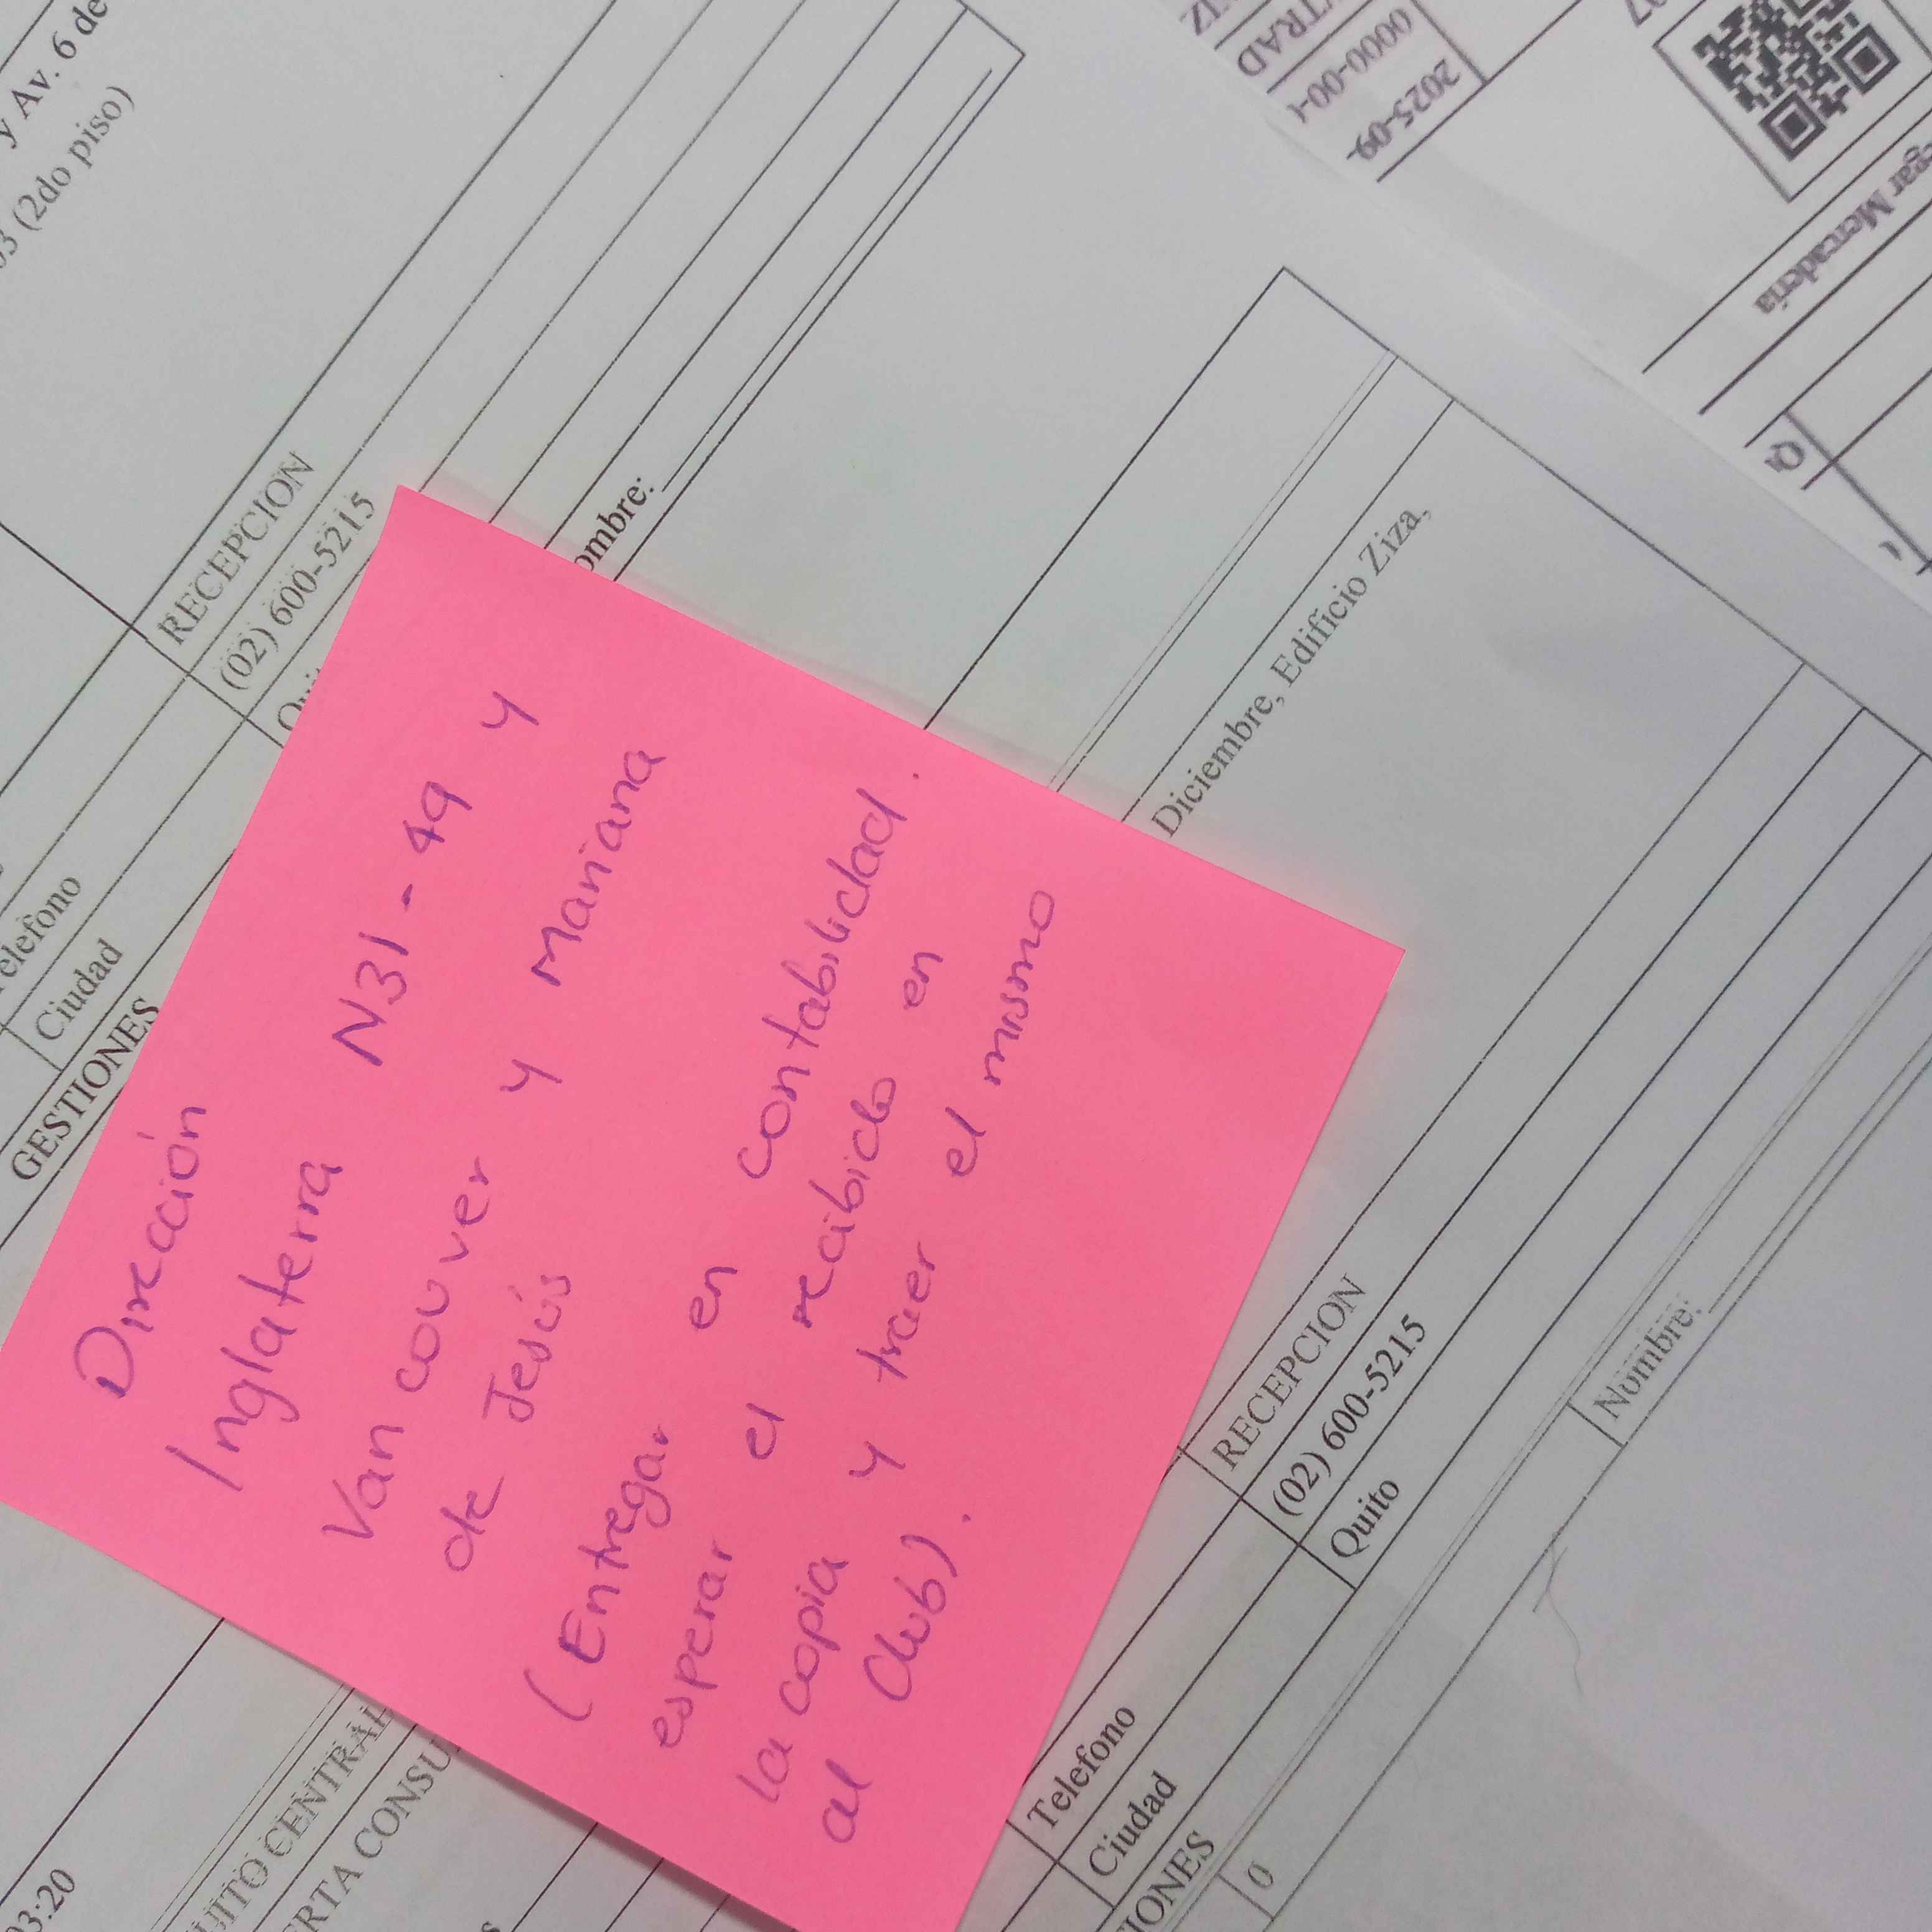 Dirección
Inglaterra N31-49 y
Vancouver y Mariana
de Jesús
(Entregar en contabilidad.
esperar el recibido en
la copia y traer el mismo
al Club).
y Av. 6 de
03 (2do piso)
RECEPCION
(02) 600-5215
Telefono
Ciudad
GESTIONES
ombre:
Diciembre, Edificio Ziza,
RECEPCION
(02) 600-5215
Quito
Telefono
Ciudad
IONES
0
Nombre:
03:20
UITO CENTRAL
ERTA CONSU
NTRAD
0000-00-(
2025-09-
egar Mercaderia